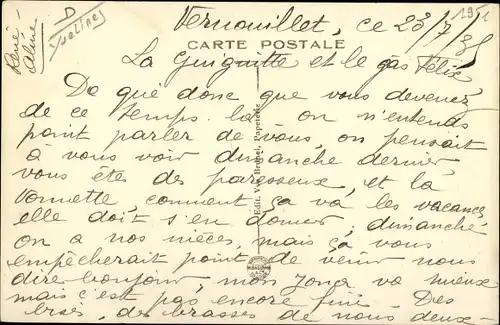 1951
D
Yvelines
René-
Aline
Vernouillet, ce 23/7/35
CARTE POSTALE
La Guiguitte et le gas Félix
Da qué donc que vous devenez
de ce temps là on n'entends
point parler de vous, on pensait
à vous voir dimanche dernier
vous êtes des paresseux, et la
comment ça va les vacances
elle doit s'en donner, dimanche
on a nos nièces, mais ça vous
empêcherait point de venir nous
dire bonjour, mon va mieux
mais c'est pas encore fini. Des
bises, des brasses de nous deux-
Edit. Vve Papeterie